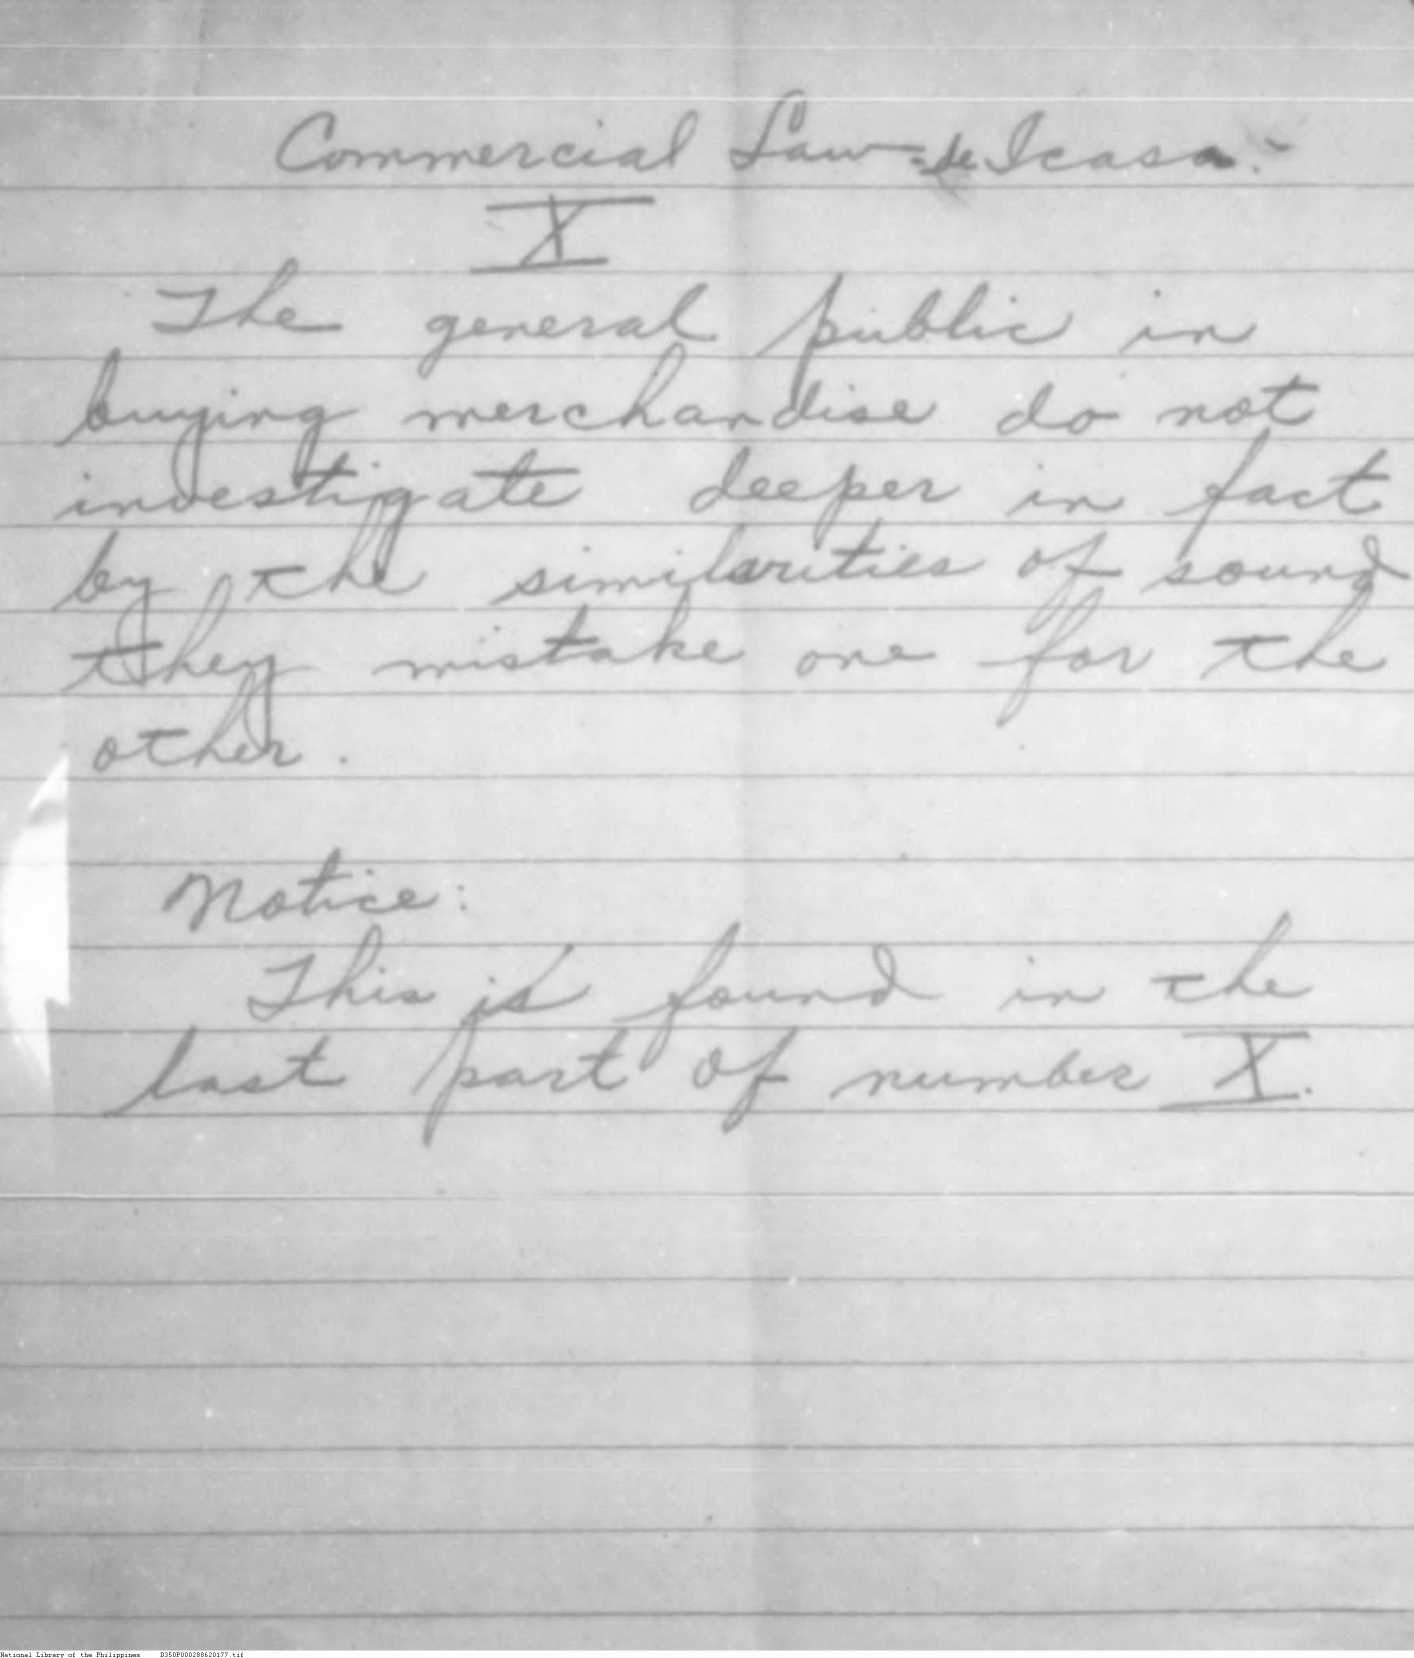 Commercial Law - de Icasa.-
X
The general public in
buying merchandise do not
investigate deeper in fact
by the similarities of sound
they mistake one for the
other.
Notice:
This is found in the
last part of number X.
National Library of the Philippines D350P000288620177.tif